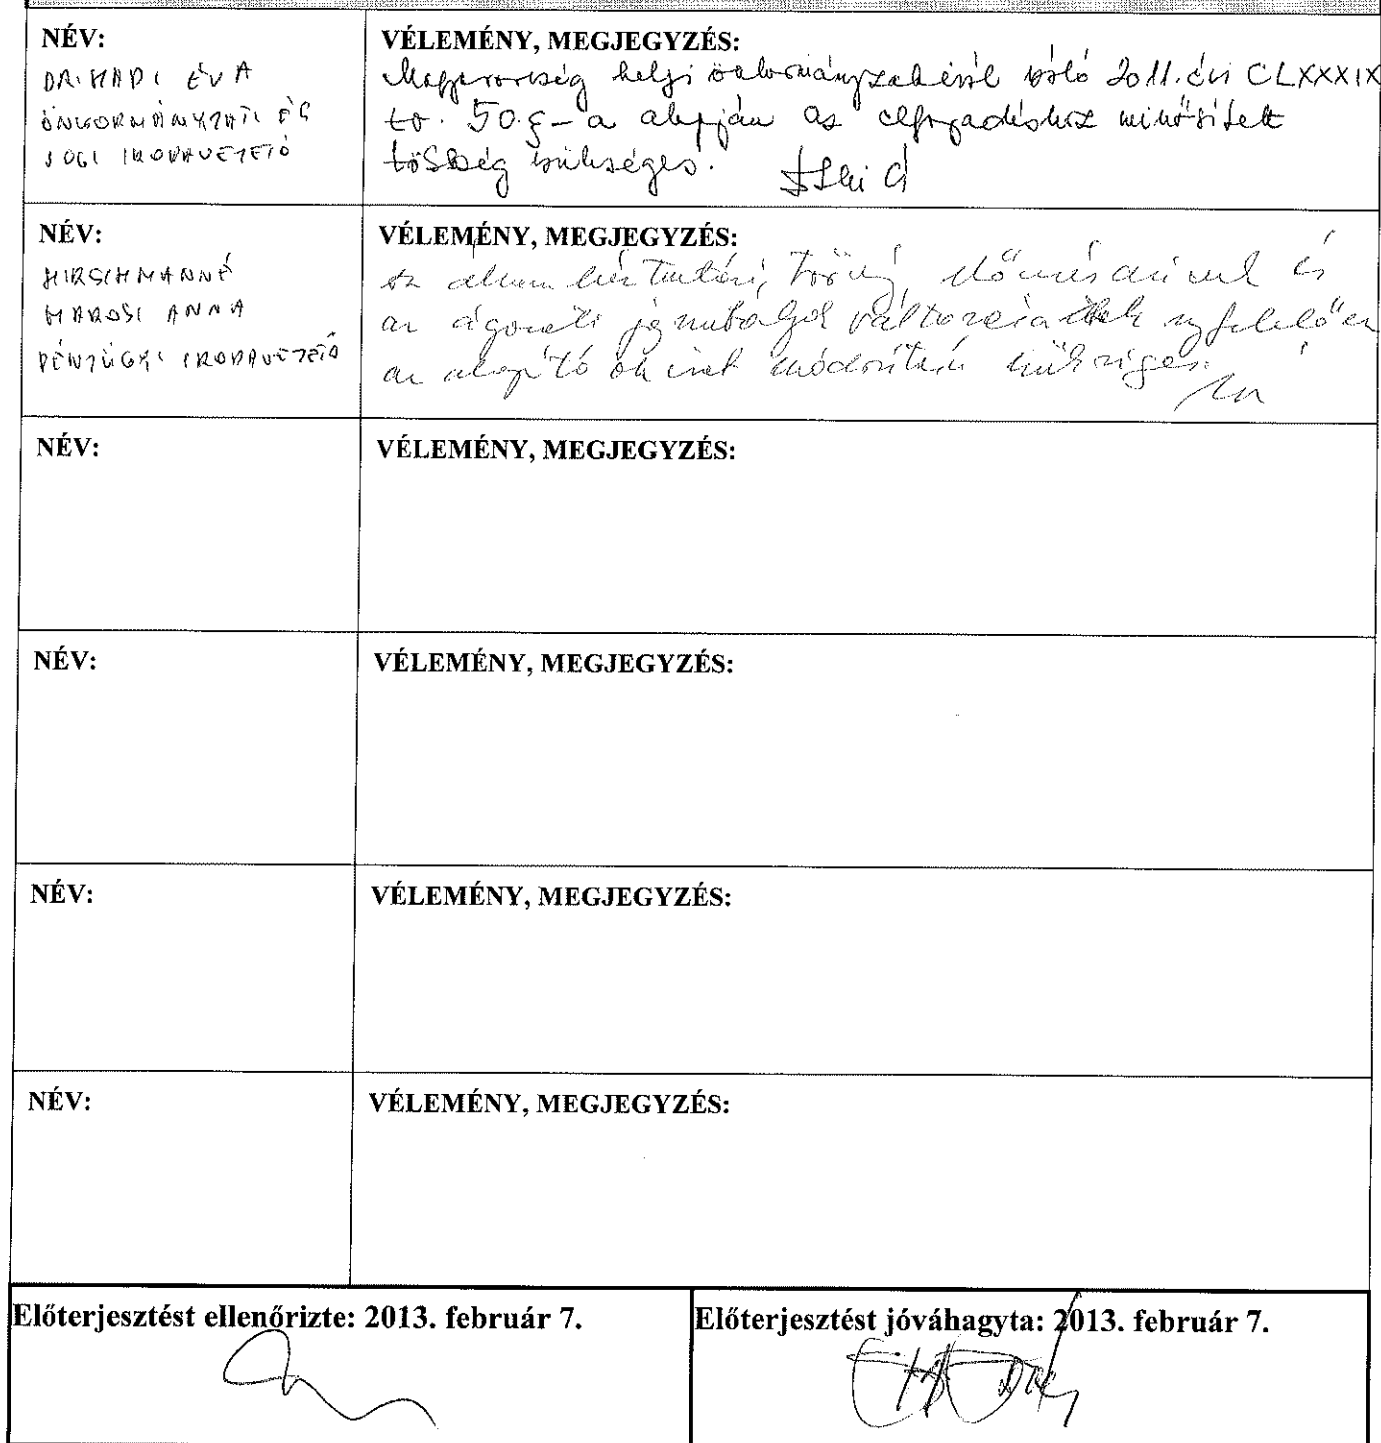 NÉV:
DR. HADI ÉVA
ÖNKORMÁNYZATI ÉS
JOGI IRODAVEZETŐ
VÉLEMÉNY, MEGJEGYZÉS:
Magyarország helyi önkormányzatairól szóló 2011. évi CLXXXIX
tv. 50.§-a alapján az elfogadáshoz minősített
többség szükséges.
NÉV:
HIRSCHMANNÉ
MAROSI ANNA
PÉNZÜGYI IRODAVEZETŐ
VÉLEMÉNY, MEGJEGYZÉS:
Az államháztartási törvény előírásainak és
an ágazati jogszabályok változásainak megfelelően
az alapító okirat módosítása szükséges.
NÉV:
VÉLEMÉNY, MEGJEGYZÉS:
NÉV:
VÉLEMÉNY, MEGJEGYZÉS:
NÉV:
VÉLEMÉNY, MEGJEGYZÉS:
NÉV:
VÉLEMÉNY, MEGJEGYZÉS:
Előterjesztést ellenőrizte: 2013. február 7.
Előterjesztést jóváhagyta: 2013. február 7.